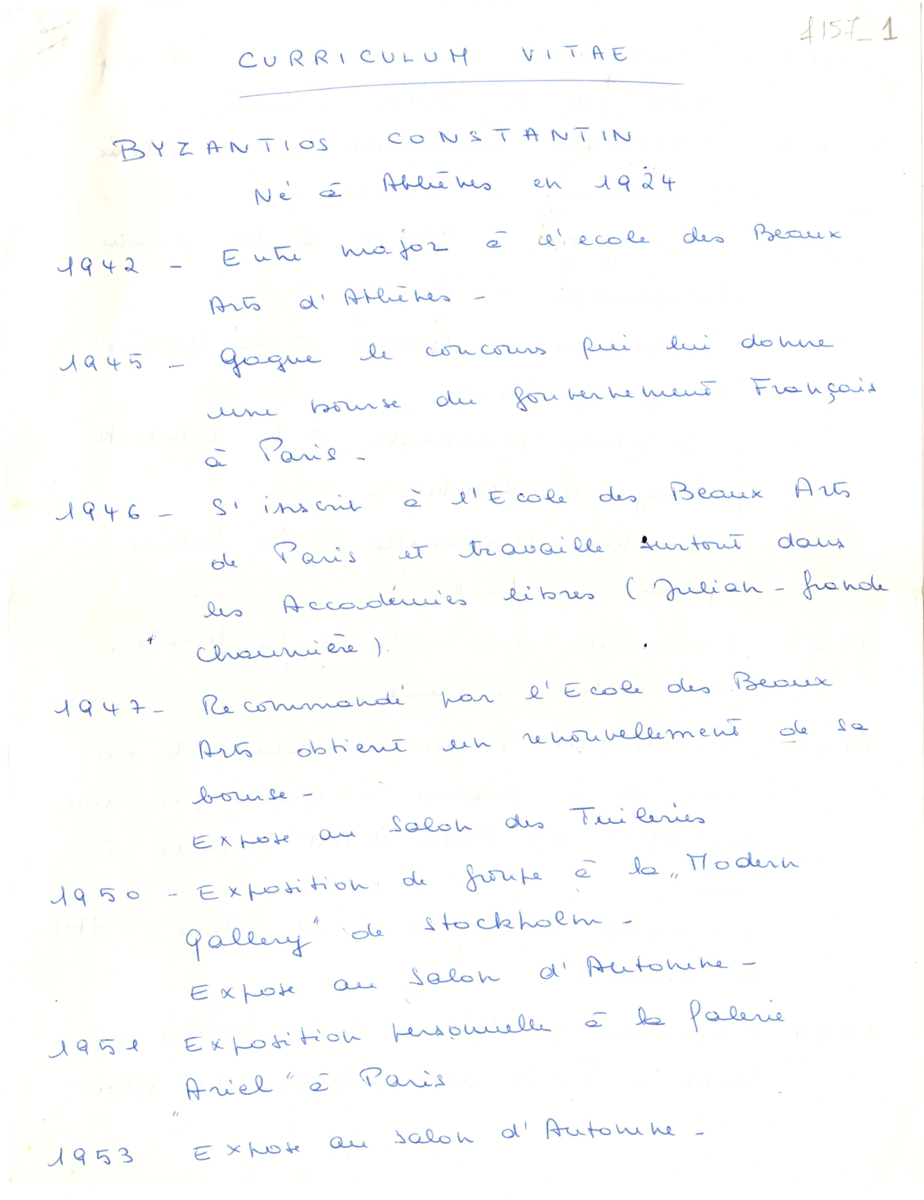 f 157_1
CURRICULUM VITAE
BYZANTIOS CONSTANTIN
Né à Athènes en 1924
1942 - Entre major à l'ecole des Beaux
Arts d'Athènes -
1945 - Gagne le concours qui lui donne
une bourse du gouvernement Français
à Paris -
1946 - S'inscrit à l'Ecole des Beaux Arts
de Paris et travaille surtout dans
les Accadémies libres (Julian - grande
chaumière)
1947 - Recommandé par l'Ecole des Beaux
Arts obtient un renouvellement de sa
bourse -
Expose au Salon des Tuileries
1950 - Exposition de groupe à la „Modern
Gallery" de Stockholm -
Expose au Salon d'Automne -
1951 Exposition personnelle à la Galerie
"Ariel" à Paris
1953 Expose au Salon d'Automne -